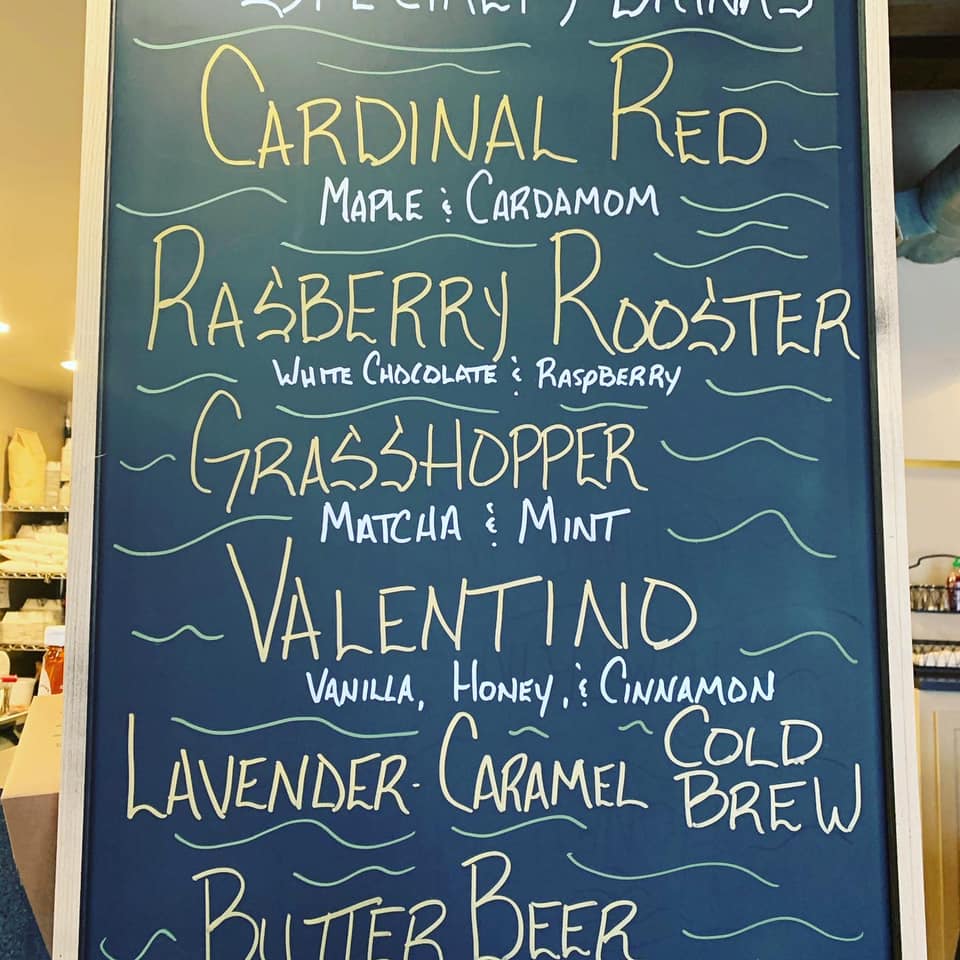 SPECIALTY DRINKS
CARDINAL RED
MAPLE & CARDAMOM
RASBERRY ROOSTER
WHITE CHOCOLATE & RASPBERRY
GRASSHOPPER
MATCHA & MINT
VALENTINO
VANILLA, HONEY, & CINNAMON
LAVENDER-CARAMEL COLD BREW
BUTTER BEER